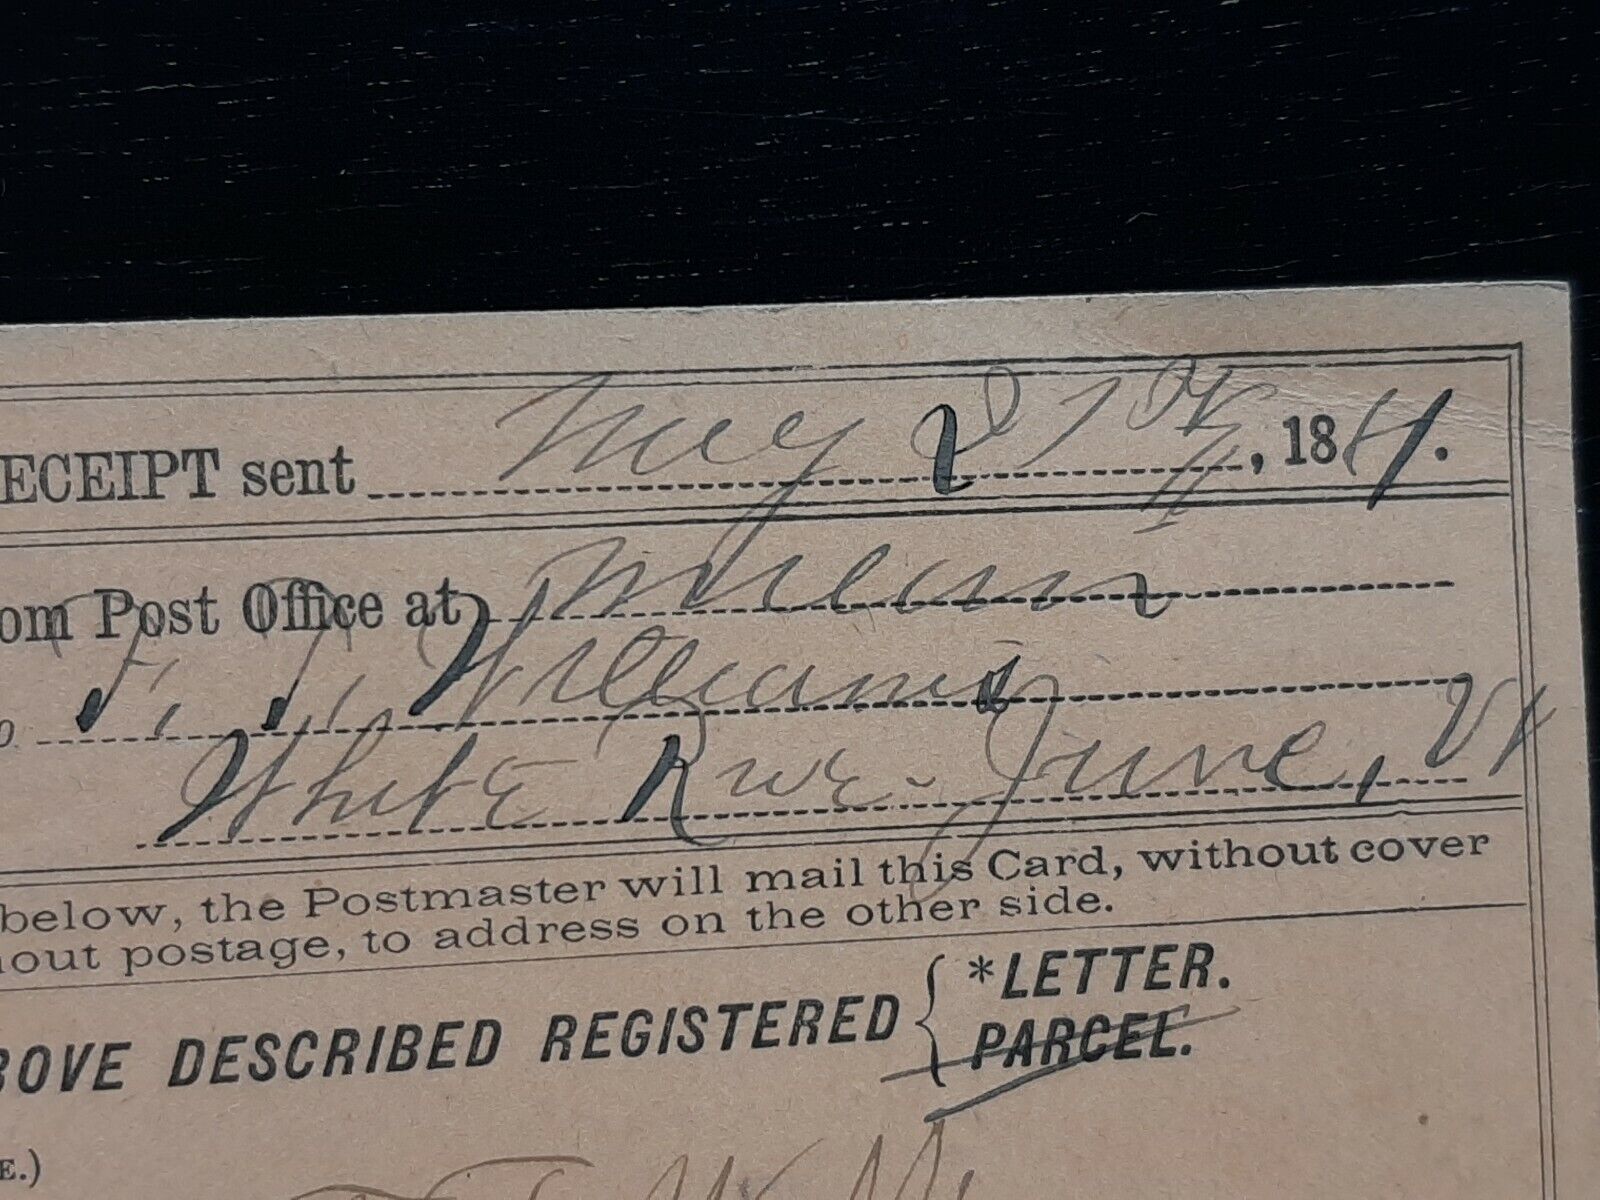 ECEIPT sent May 27th, 1884.
om Post Office at
o. F. F. Williams
White Rive. June, Vt
below, the Postmaster will mail this Card, without cover
hout postage, to address on the other side.
BOVE DESCRIBED REGISTERED { *LETTER.
PARCEL.
E.)